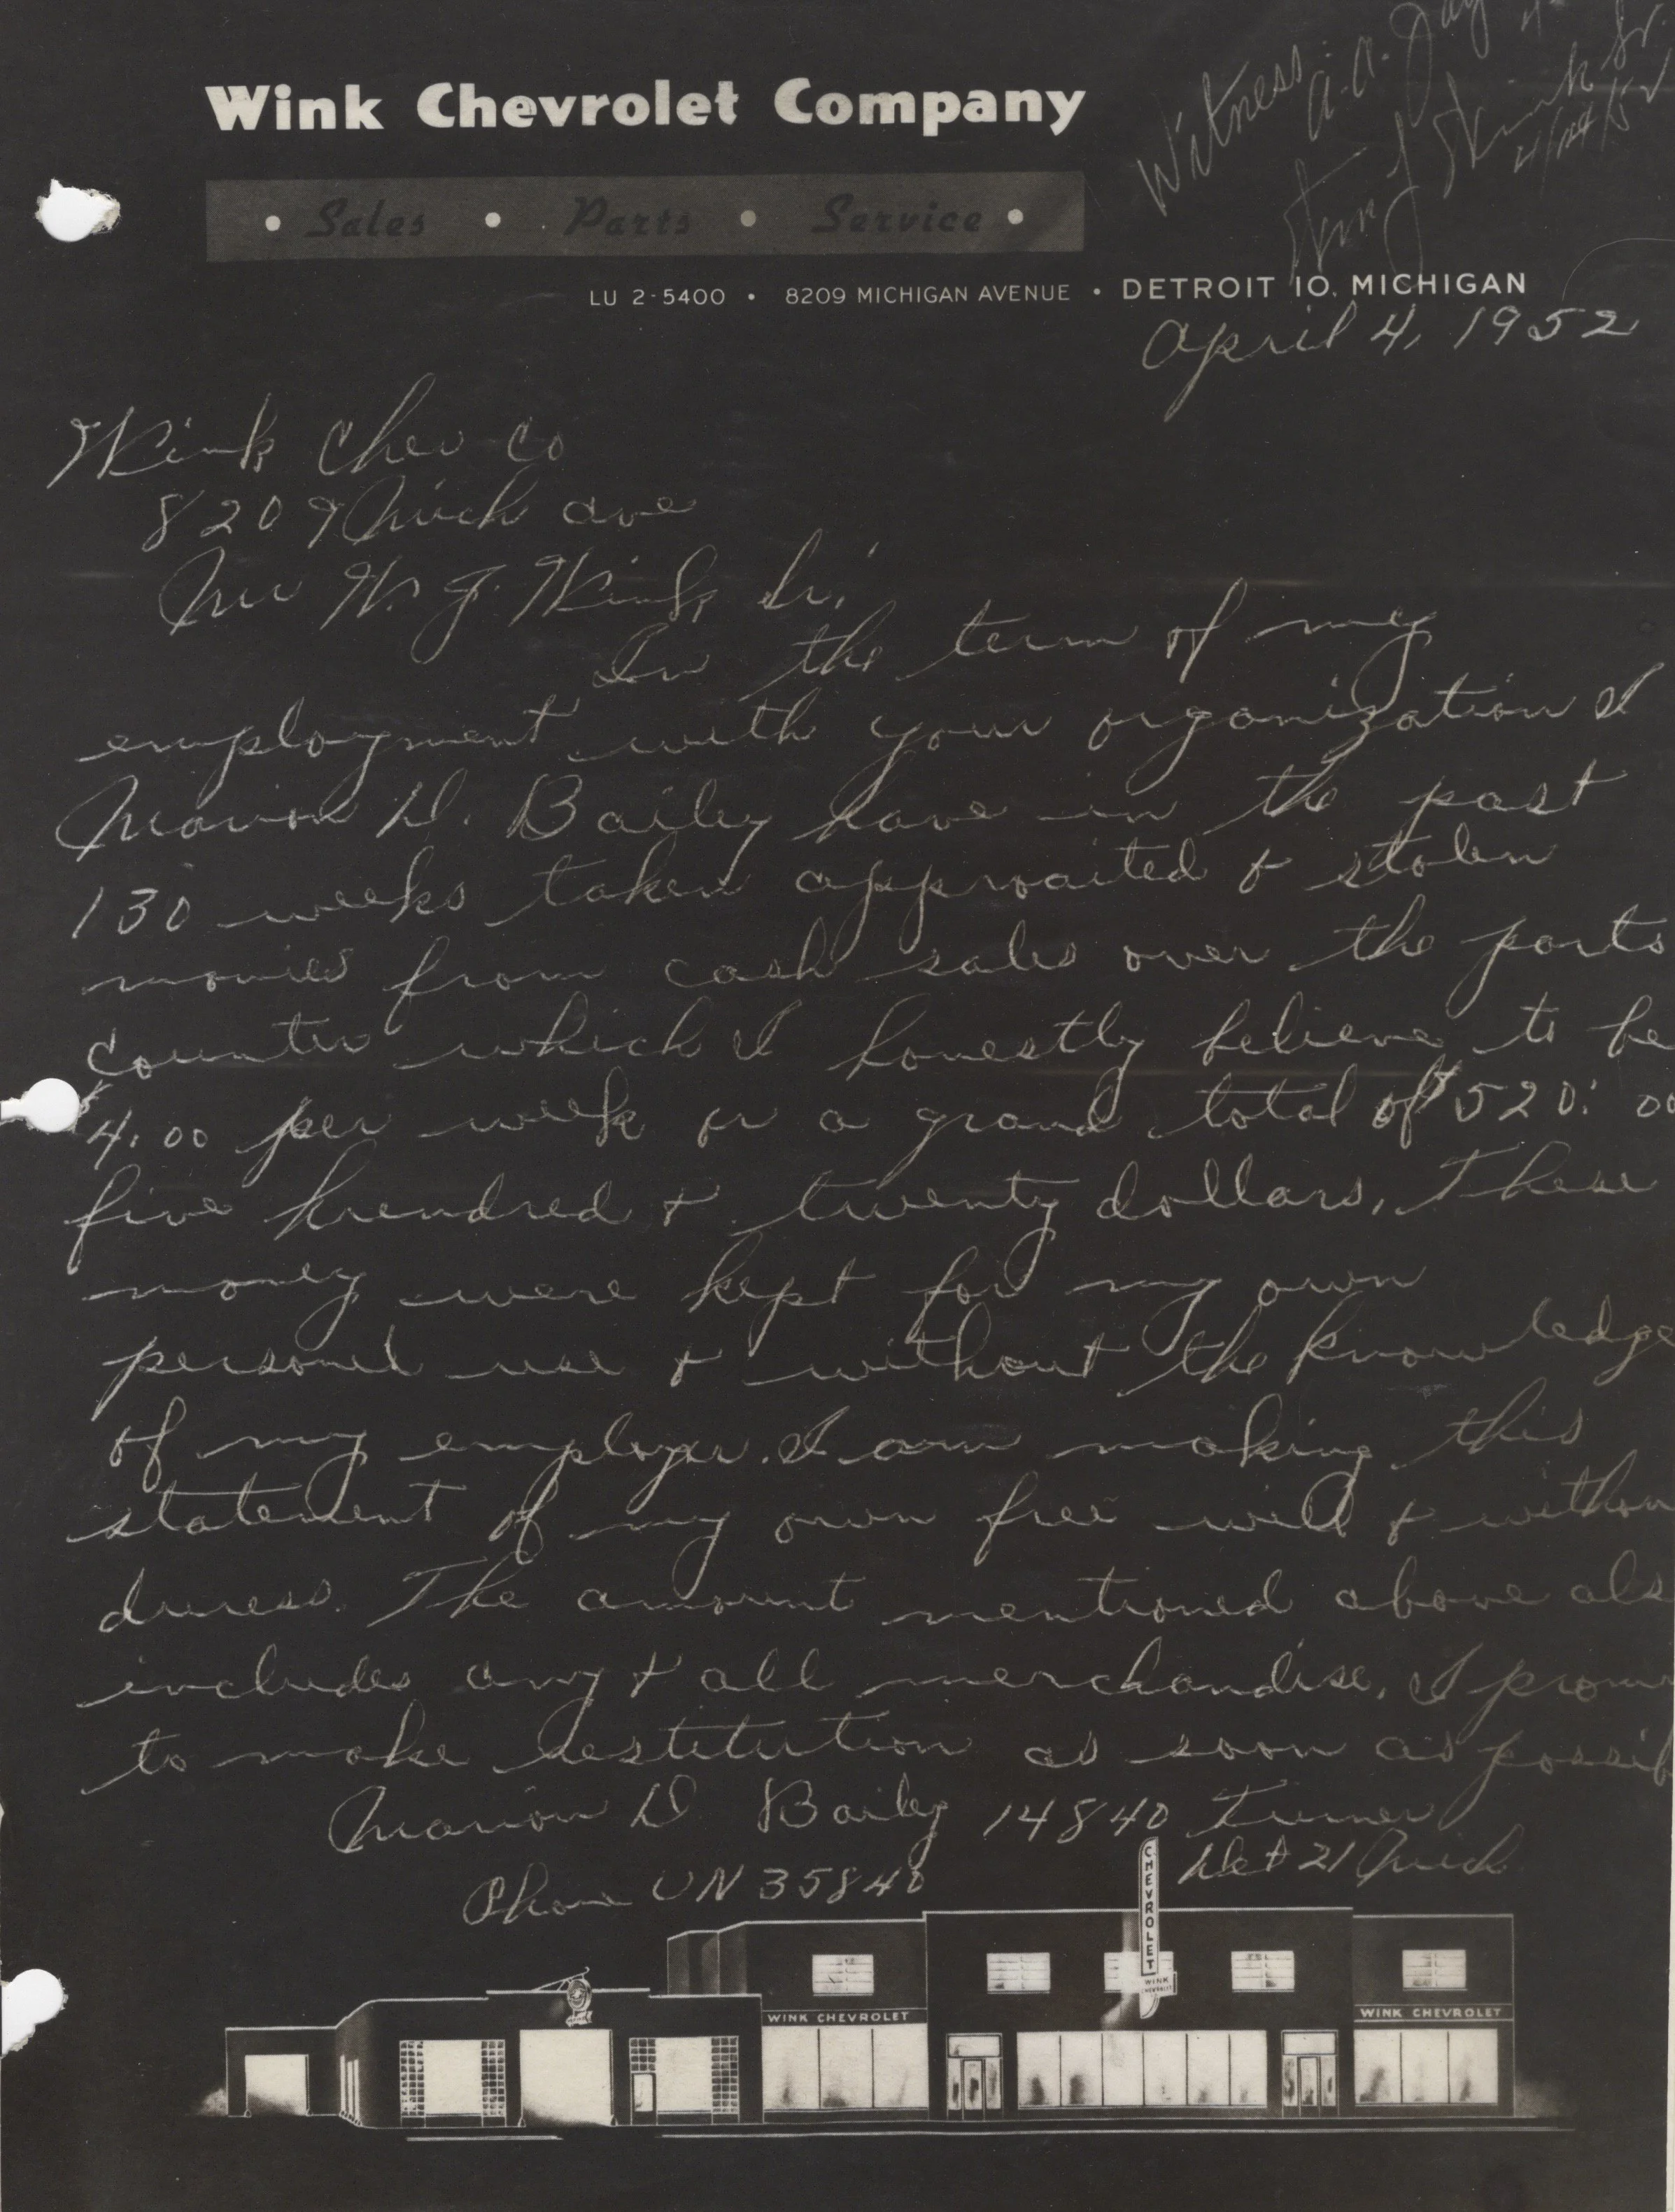 Wink Chevrolet Company
Witness
A.A. Day
4/4/52
• Sales • Parts • Service •
LU 2-5400 • 8209 MICHIGAN AVENUE • DETROIT 10, MICHIGAN
April 4, 1952
Wink Chev Co
8209 Mich ave
Mr W. J. Wink, Sr.
In the term of my
employment with your organization I
Marion D. Bailey have in the past
130 weeks taken approaited & stolen
monies from cash sales over the parts
counter which I honestly believe to be
$4.00 per week or a grand total of $520.00
five hundred & twenty dollars. These
money were kept for my own
personel use & without the knowledge
of my employer. I am making this
statement of my own free will & withou
duress. The amount mentioned above als
includes any & all merchandise. I prom
to make restitution as soon as possib
Marion D Bailey 14840 Turner
Phone UN 35840 Det 21 Mich
CHEVROLET
WINK
CHEVROLET
WINK CHEVROLET
WINK CHEVROLET